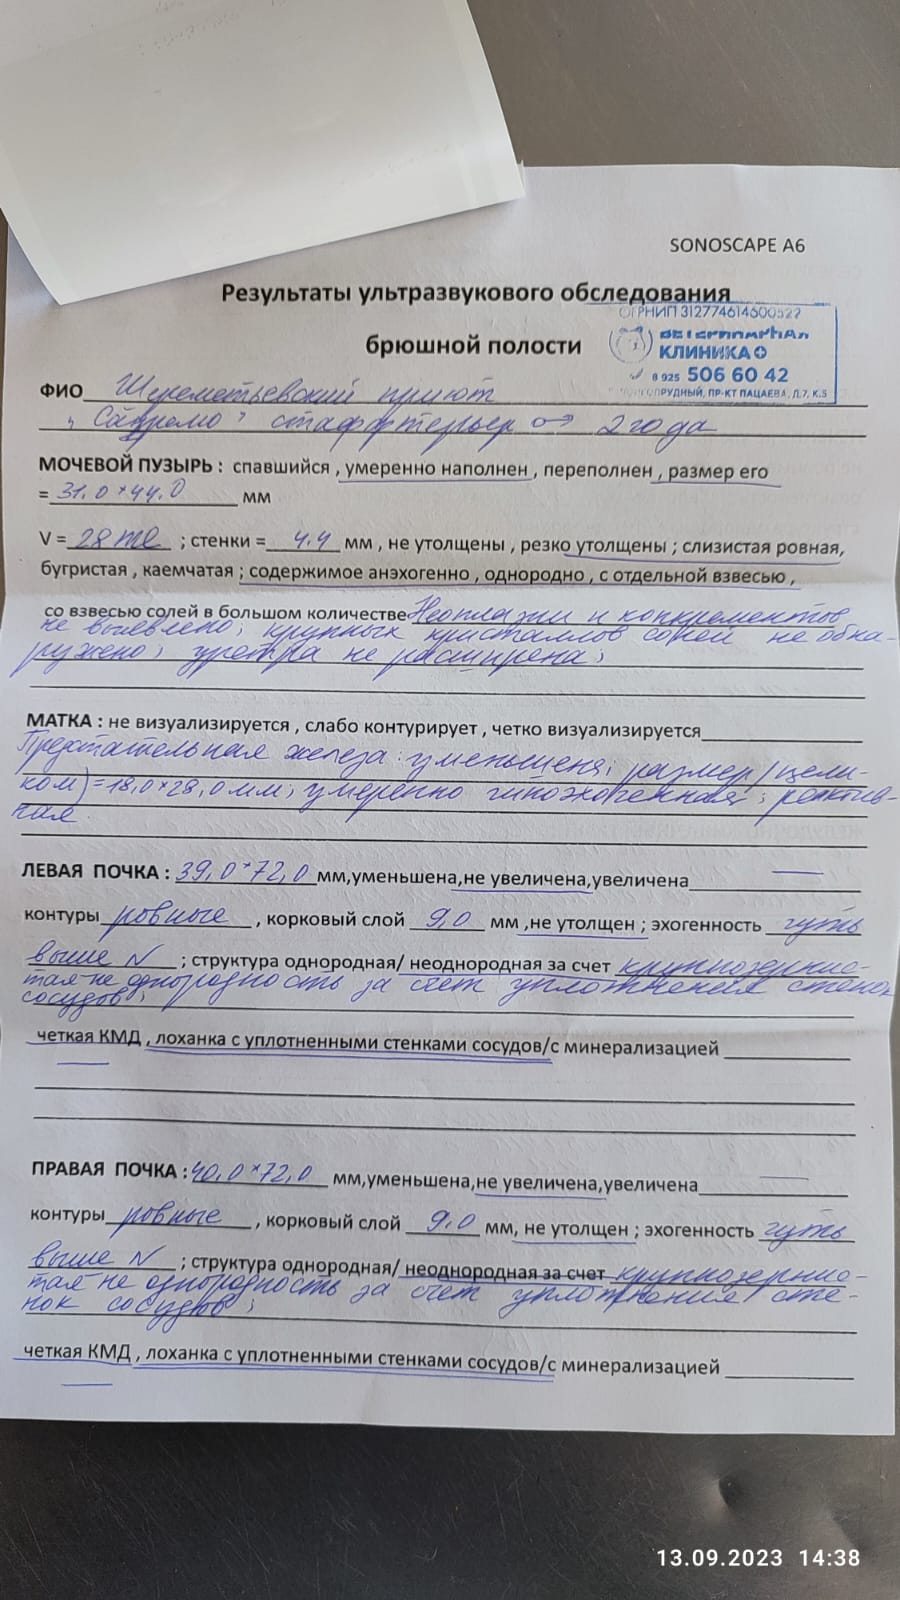 SONOSCAPE A6
Результаты ультразвукового обследования
брюшной полости
ОГРНИП 312774614600527
ВЕТЕРИНАРНАЯ
КЛИНИКА
8 925 506 60 42
ПР-КТ ПАЦАЕВА, Д.7, К.5
ФИО Шереметьевский приют
стаффтерьер ♂ 2 года
МОЧЕВОЙ ПУЗЫРЬ : спавшийся , умеренно наполнен , переполнен , размер его
= 31,0*44,0 мм
V = 28 ml ; стенки = 4.4 мм , не утолщены , резко утолщены ; слизистая ровная,
бугристая , каемчатая ; содержимое анэхогенно , однородно , с отдельной взвесью ,
со взвесью солей в большом количестве Неоплазии и конкрементов
не выявлено; крупных кристаллов солей не обна-
ружено; уретра не расширена;
МАТКА : не визуализируется , слабо контурирует , четко визуализируется
Предстательная железа: уменьшена; размер (цели-
ком) = 18,0*28,0 мм; умеренно гипоэхогенная; реактив-
ная.
ЛЕВАЯ ПОЧКА : 39,0*72,0 мм,уменьшена,не увеличена,увеличена —
контуры ровные , корковый слой 9,0 мм ,не утолщен ; эхогенность чуть
выше N ; структура однородная/ неоднородная за счет крупнозернис-
тая не однородность за счет уплотнения стенок
сосудов;
четкая КМД , лоханка с уплотненными стенками сосудов/с минерализацией
—
ПРАВАЯ ПОЧКА : 40,0*72,0 мм,уменьшена,не увеличена,увеличена —
контуры ровные , корковый слой 9,0 мм, не утолщен ; эхогенность чуть
выше N ; структура однородная/ неоднородная за счет крупнозернис-
тая не однородность за счет уплотнения сте-
нок сосудов;
четкая КМД , лоханка с уплотненными стенками сосудов/с минерализацией
—
13.09.2023 14:38